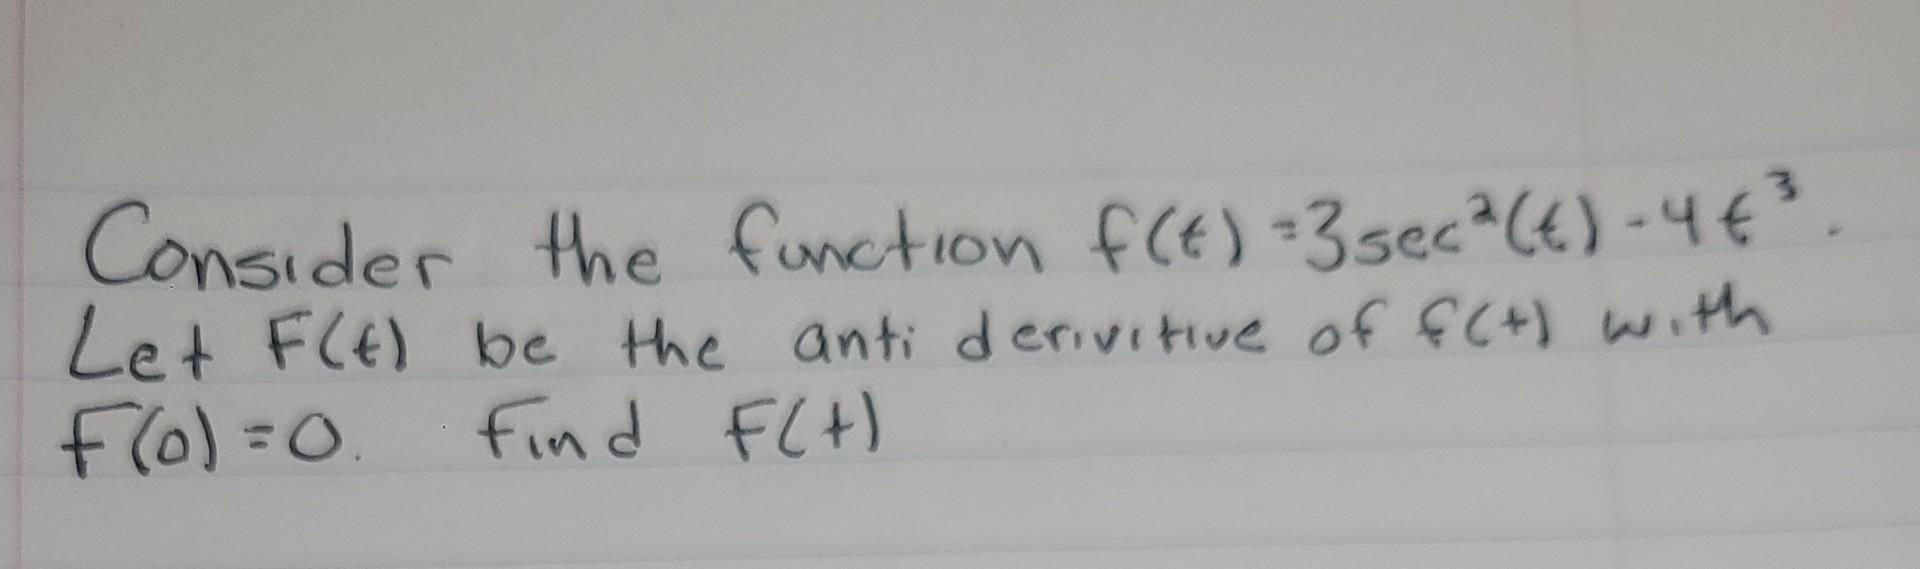 Consider the function f(t) =3sec²(t) -4t³.
Let F(t) be the anti derivitive of f(t) with
F(0) =0. Find F(t)